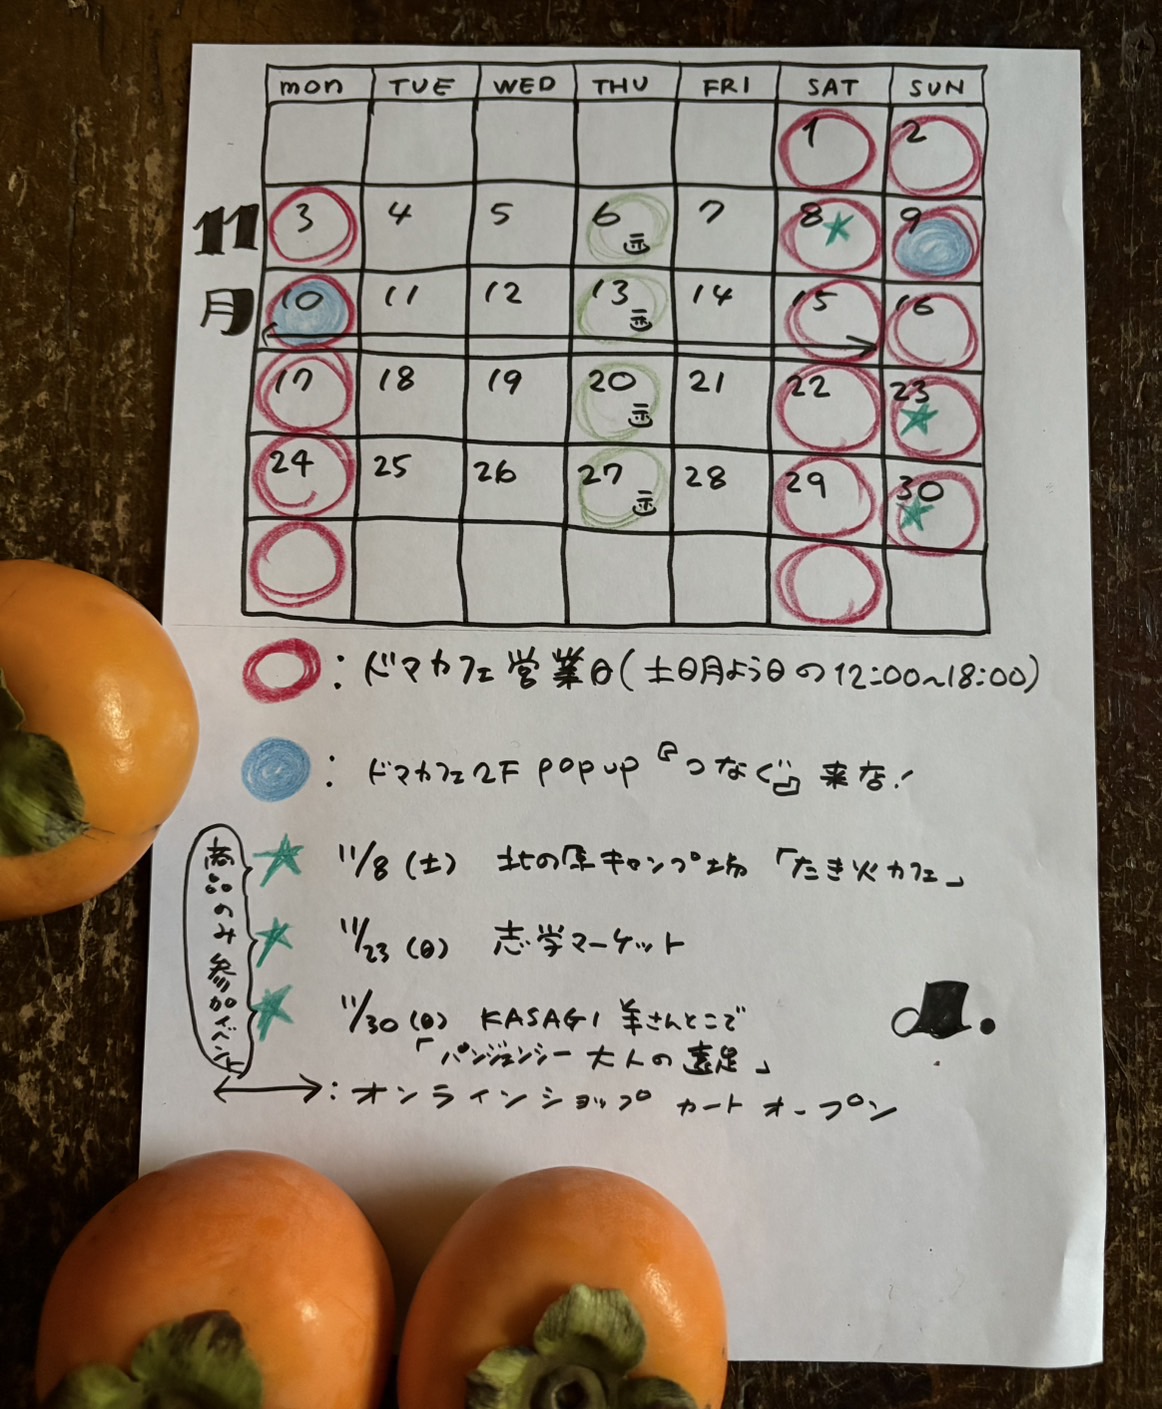 mon TUE WED THU FRI SAT SUN
1 2
11月
3 4 5 6 7 8 9
10 11 12 13 14 15 16
17 18 19 20 21 22 23
24 25 26 27 28 29 30
：ドマカフェ営業日(土日月よう日の12:00～18:00)
：ドマカフェ2F POPUP『つなぐ』来店!
商品のみ参加イベント
11/8(土) 北の原キャンプ場「たき火カフェ」
11/23(日) 志学マーケット
11/30(日) KASAGI 羊さんとこで
「パンジェンシー大人の遠足」
：オンラインショップ カートオープン